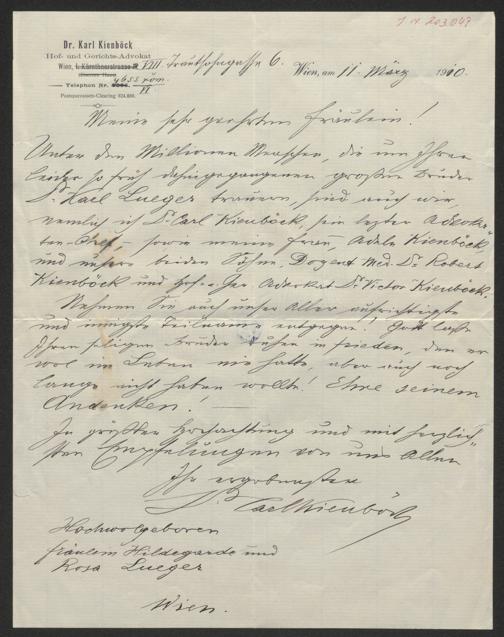 I N 203047
Dr. Karl Kienböck
Hof- und Gerichts-Advokat
Wien, I. Kärntnerstrasse VIII. Trautsohngasse 6.
Telephon Nr. 4655 röm.
VI
Postsparcassen-Clearing 824.890.
Wien, am 11. März 1910.
Meine sehr geehrten Fräulein!
Unter den Millionen Menschen, die um Ihren
leider so früh dahingegangenen großen Bruder
Dr. Karl Lueger trauern, sind auch wir,
nemlich ich Dr. Carl Kienböck, sein letzter Advoka-
ten-Chef, – sowie meine Frau, Adele Kienböck,
und unsere beiden Söhne, Dozent Med. Dr. Robert
Kienböck und Hof- u. Ger. Advokat Dr. Victor Kienböck.
Nehmen Sie auch unser Aller aufrichtigste
und innigste Teilname entgegen! Gott lasse
Ihren seligen Bruder ruhen in Frieden, den er
wol im Leben nie hatte, aber auch noch
lange nicht haben wollte! Ehre seinem
Andenken! —
In größter Hochachtung und mit herzlich-
sten Empfelungen von uns Allen
Ihr ergebenster
Dr. Carl Kienböck
Hochwolgeboren
Fräulein Hildegarde und
Rosa Lueger
Wien.